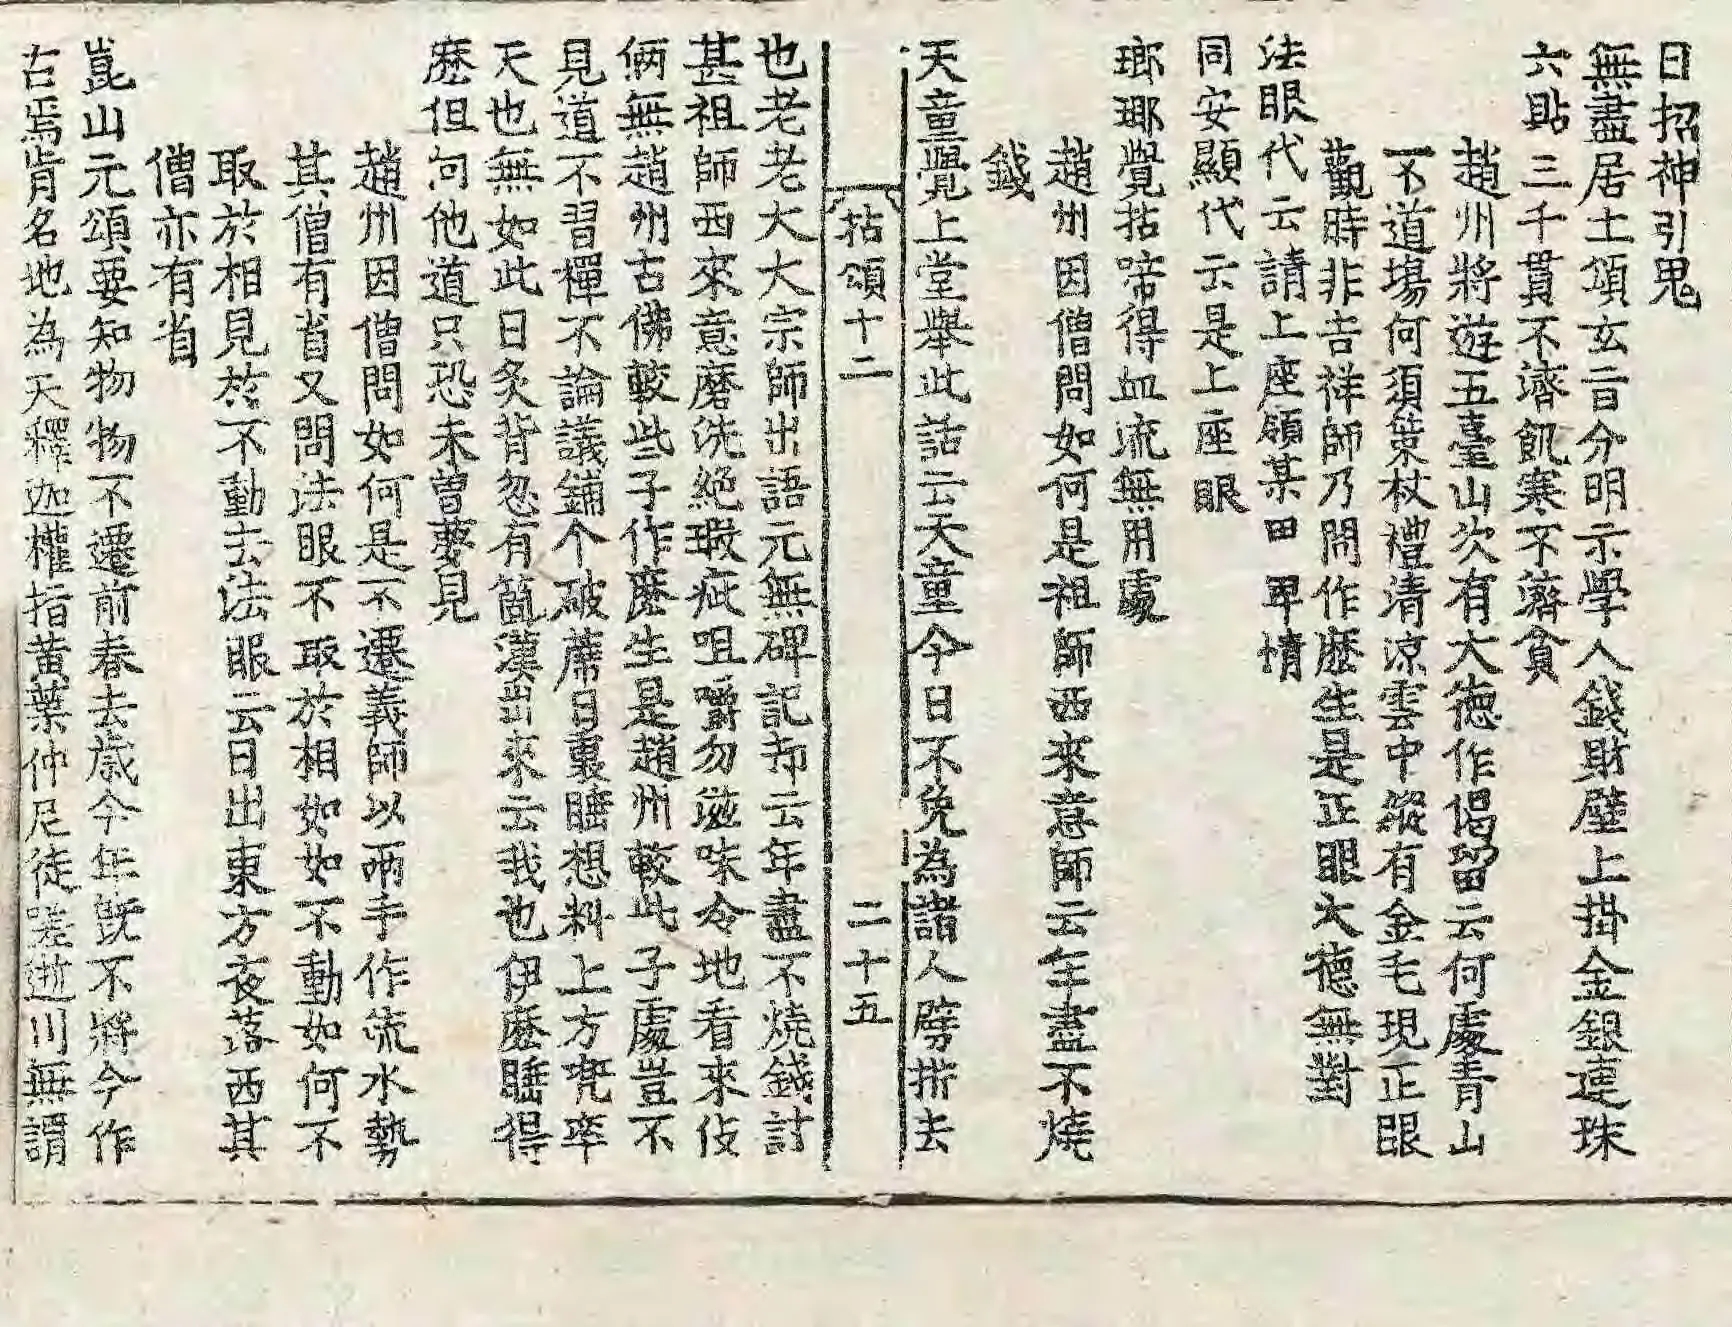 日招神引鬼
無盡居士頌玄言分明示學人錢財壁上掛金銀連珠
六貼三千貫不濟飢寒不濟貧
趙州將遊五臺山次有大德作偈留云何處青山
不道場何須策杖禮清凉雲中縱有金毛現正眼
觀時非吉祥師乃問作麽生是正眼大德無對
法眼代云請上座領某田 𤰞情
同安顯代云是上座眼
瑯瑘覺拈啼得血流無用處
趙州因僧問如何是祖師西來意師云年盡不燒
錢
天童覺上堂舉此話云天童今日不免為諸人劈析去
拈頌十二 二十五
也老老大大宗師出語元無碑記却云年盡不燒錢討
甚祖師西來意磨洗絶瑕疵咀嚼勿滋味令地看來伎
倆無趙州古佛較些子作麽生是趙州較此子處豈不
見道不習禪不論議鋪个破蓆日裏睡想料上方兜率
天也無如此日炙背忽有箇漢出來云我也伊麽睡得
麽但向他道只恐未曾夢見
趙州因僧問如何是不遷義師以兩手作流水勢
其僧有省又問法眼不取於相如如不動如何不
取於相見於不動去法眼云日出東方夜落西其
僧亦有省
崑山元頌要知物物不遷前春去歲今年旣不將今作
古焉肯名地為天釋迦權指黃葉仲尼徒嗟逝川無謂